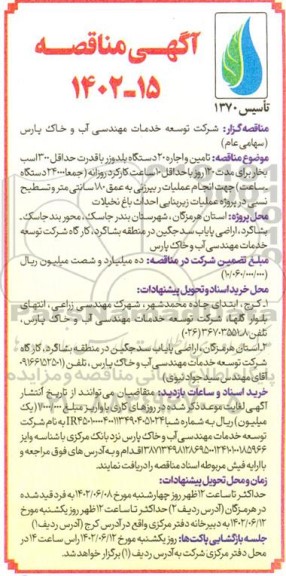 آگهـی مناقصـه
۱۵-۱۴۰۲
تأسیس ۱۳۷۰
مناقصه‌گزار: شرکت توسعه خدمات مهندسی آب و خاک پارس
(سهامی عام)
موضوع مناقصه: تامین و اجاره ۲۰ دستگاه بلدوزر با قدرت حداقل ۳۰۰ اسب
بخار برای مدت ۱۲۰ روز با حداقل ۱۰ ساعت کارکرد روزانه (جمعا ۲۴۰۰۰ دستگاه
ـ ساعت) جهت انجام عملیات ریپرزنی به عمق ۸۰ سانتی متر و تسطیح
نسبی در پروژه عملیات زیربنایی احداث باغ نخیلات
محل پروژه: استان هرمزگان، شهرستان بندر جاسک، محور بندر جاسک ـ
بشاگرد، اراضی پایاب سد جگین در منطقه بشاگرد، کارگاه شرکت توسعه
خدمات مهندسی آب و خاک پارس
مبلغ تضمین شرکت در مناقصه: ده میلیارد و شصت میلیون ریال
(۱۰/۰۶۰/۰۰۰/۰۰۰)
محل خرید اسناد و تحویل پیشنهادات:
۱ـ کرج، ابتدای جاده محمدشهر، شهرک مهندسی زراعی، انتهای
بلوار گلها، شرکت توسعه خدمات مهندسی آب و خاک پارس،
تلفن ۸ـ ۳۶۷۰۳۵۵۱ (۰۲۶)
۲ـ استان هرمزگان، اراضی پایاب سد جگین در منطقه بشاگرد، کارگاه
شرکت توسعه خدمات مهندسی آب و خاک پارس، تلفن (۰۹۱۶۶۱۵۲۵۰۱
آقای مهندس سید جواد نبوی)
خرید اسناد و ساعات بازدید: متقاضیان می توانند از تاریخ انتشار
آگهی لغایت موعد ذکر شده در روزهای کاری با واریز مبلغ ۱/۰۰۰/۰۰۰ (یک
میلیون) ریال به شماره شبا به نام شرکت
توسعه خدمات مهندسی آب و خاک پارس نزد بانک مرکزی با شناسه واریز
اقدام و به آدرس های فوق مراجعه و
با ارایه فیش مربوطه اسناد مناقصه را دریافت نمایند.
زمان و محل تحویل پیشنهادات:
حداکثر تا ساعت ۱۲ ظهر روز چهارشنبه مورخ ۱۴۰۲/۰۶/۰۸ به فرد قید شده
در هرمزگان (آدرس ردیف ۲) حداکثر تا ساعت ۱۲ ظهر روز یکشنبه مورخ
۱۴۰۲/۰۶/۱۲ به دبیرخانه دفتر مرکزی واقع در آدرس کرج (آدرس ردیف ۱)
جلسه بازگشایی پاکت‌ها: روز یکشنبه مورخ ۱۴۰۲/۰۶/۱۲ راس ساعت ۱۴ در
محل دفتر مرکزی شرکت به آدرس ردیف (۱) برگزار خواهد شد.